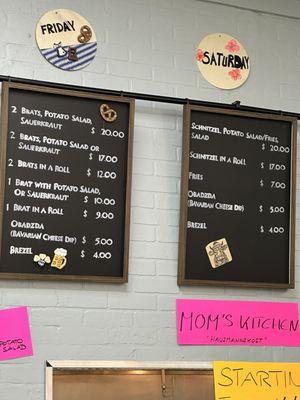 FRIDAY
2 BRATS, POTATO SALAD,
SAUERKRAUT
$ 20.00
2 BRATS, POTATO SALAD OR
SAUERKRAUT
$ 17.00
2 BRATS IN A ROLL
$ 12.00
1 BRAT WITH POTATO SALAD,
OR SAUERKRAUT $ 10.00
1 BRAT IN A ROLL $ 9.00
OBADZDA
(BAVARIAN CHEESE DIP) $ 5.00
BREZEL $ 4.00
SATURDAY
SCHNITZEL, POTATO SALAD/FRIES,
SALAD
$ 20.00
SCHNITZEL IN A ROLL
$ 17.00
FRIES
$ 7.00
OBADZDA
(BAVARIAN CHEESE DIP) $ 5.00
BREZEL
$ 4.00
POTATO
SALAD
MOM'S KITCHEN
"HAUSMANNSKOST"
STARTING